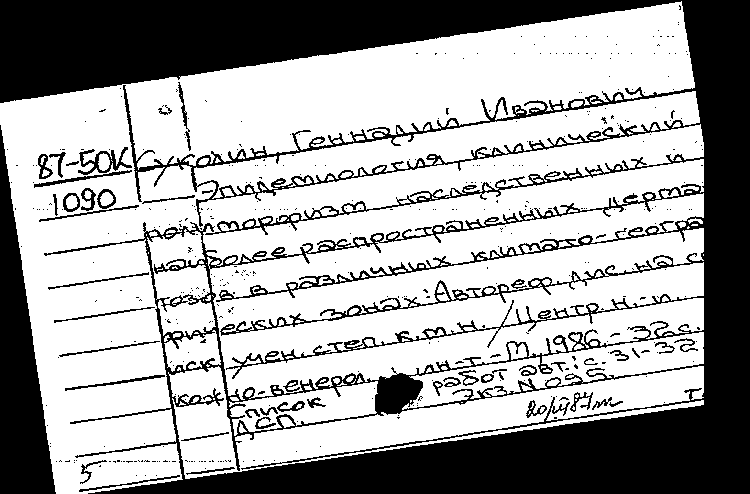 87-50К Суколин, Геннадий Иванович.
1090 Эпидемиология, клинический
полиморфизм наследственных и
наиболее распространенных дерма
тозов в различных климато-геогра
фических зонах: Автореф. дис. на с
иск. учен. степ. к.м.н. / Центр. н.-и.
кожно-венерол. ин-т. - М., 1986. - 32с.
Список работ авт.: с. 31-32
ДСП. Экз. N 095.
5